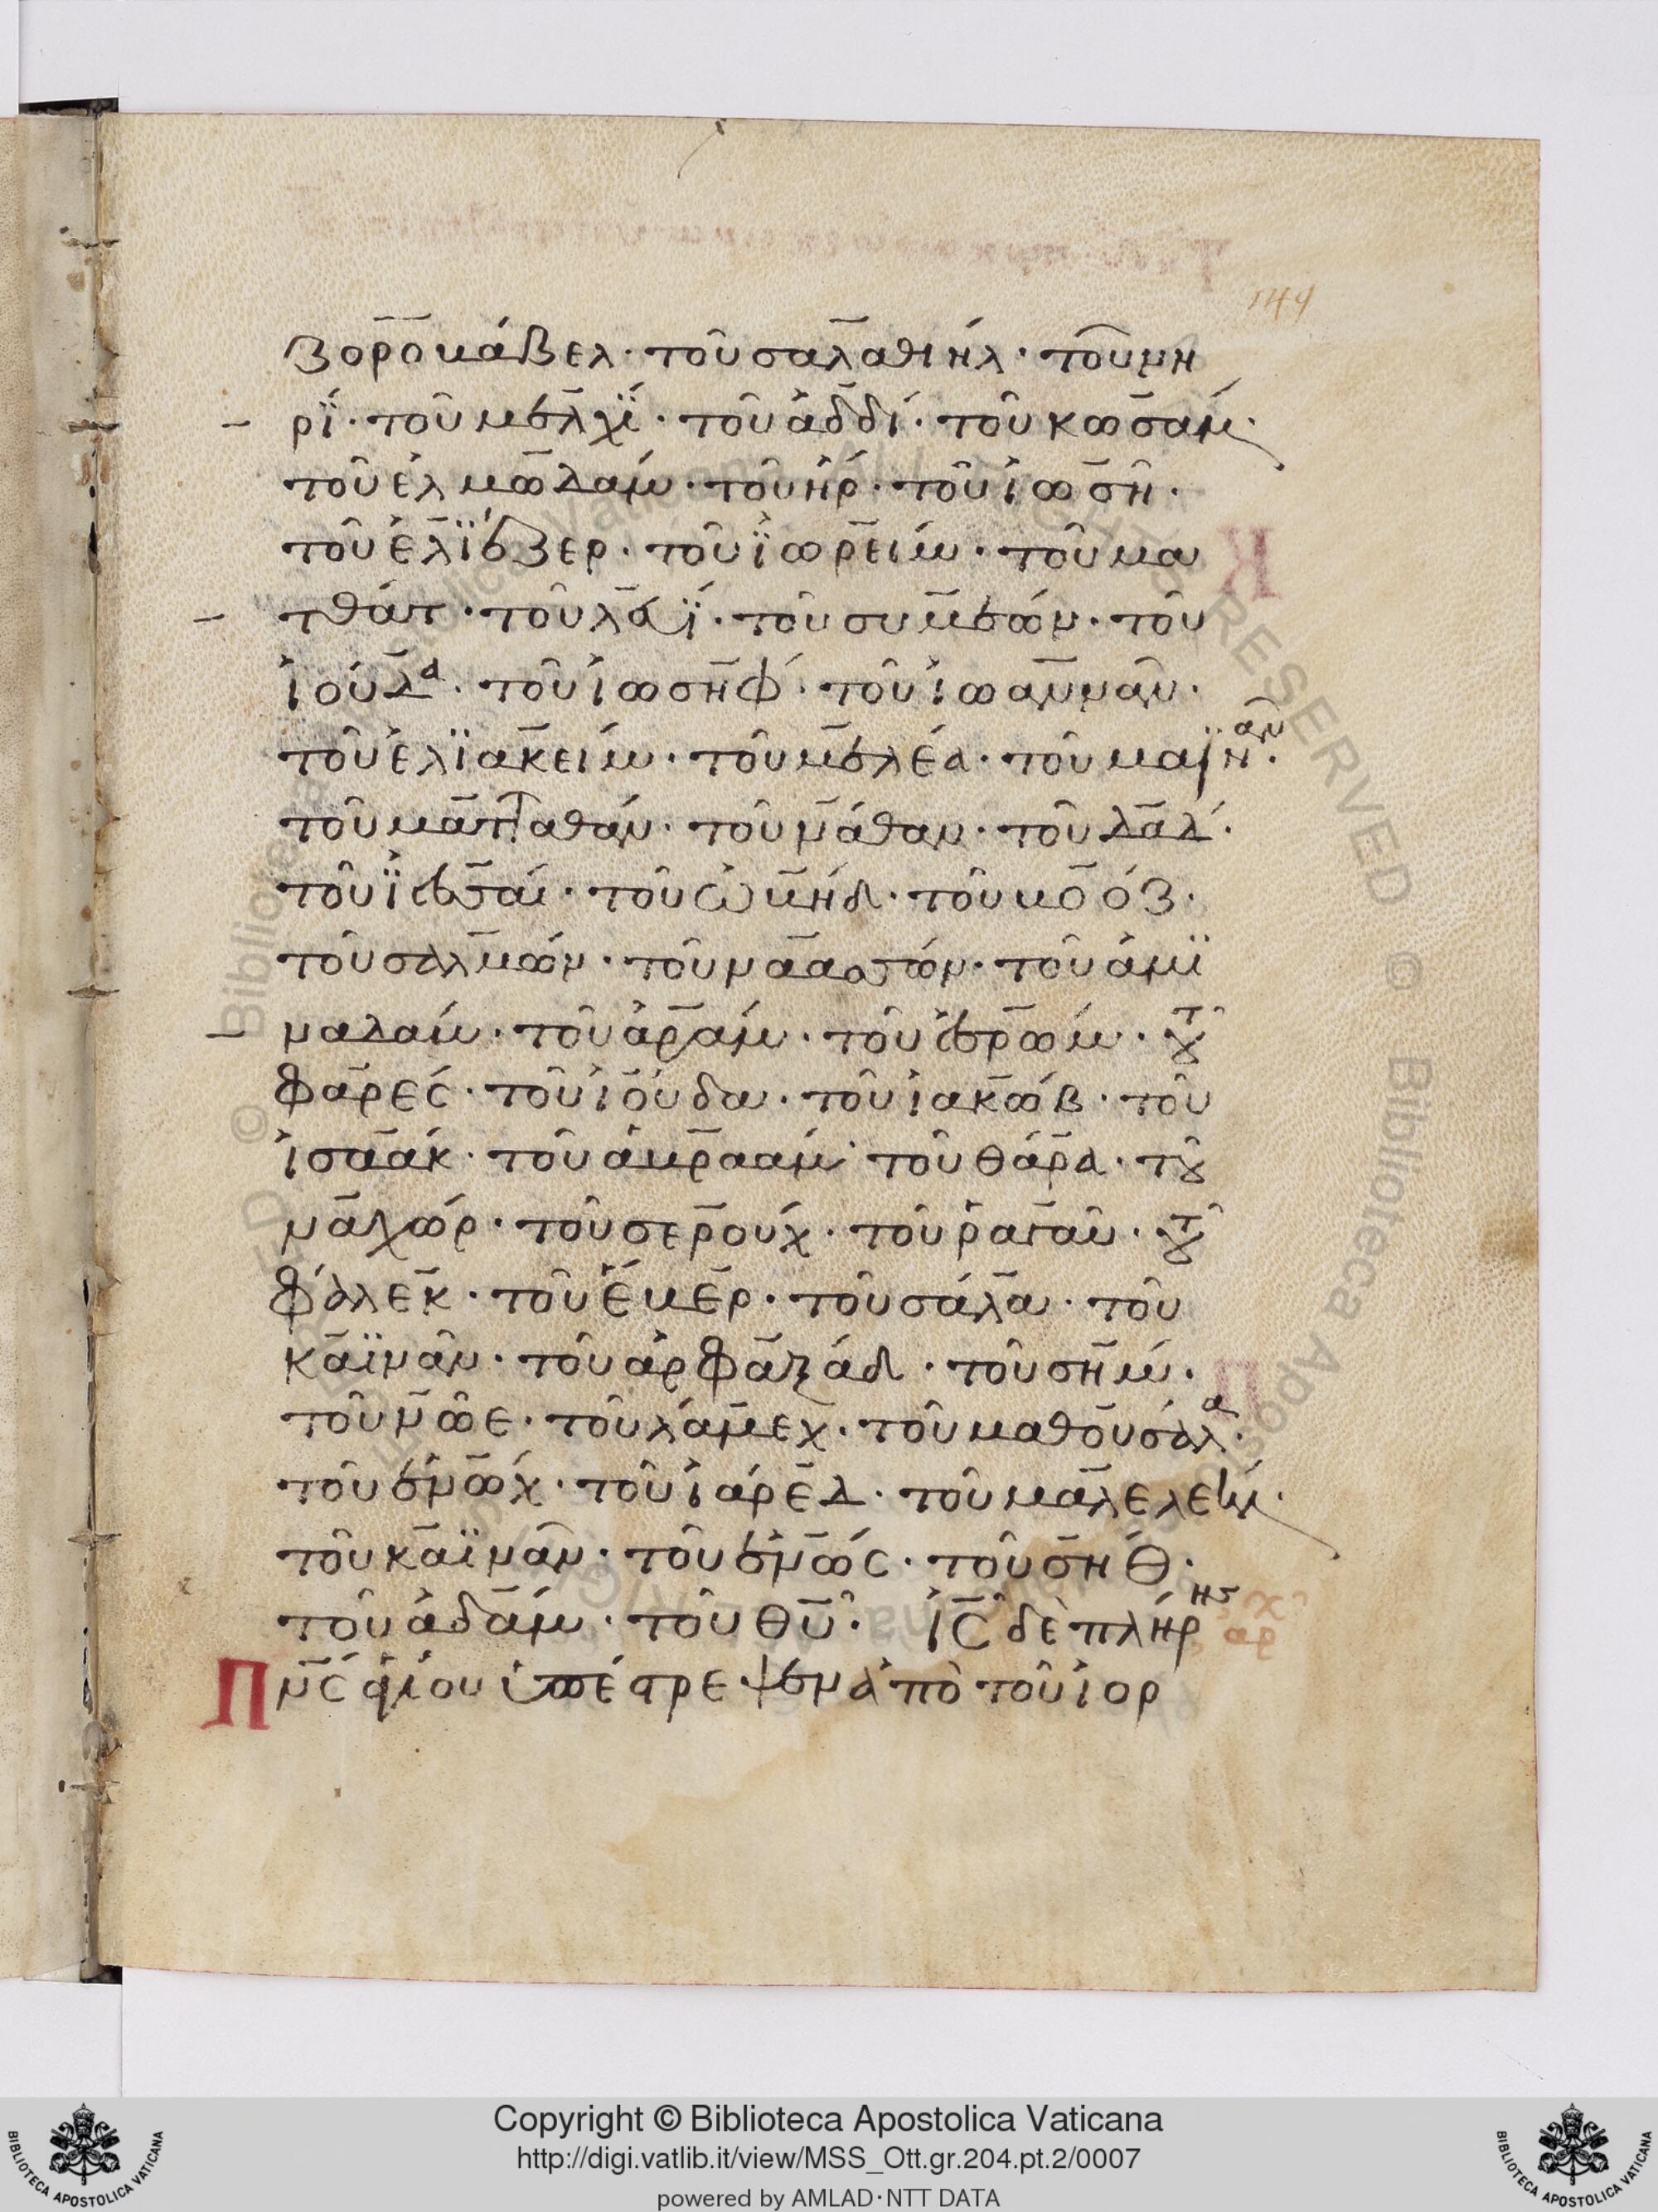 149
ζορομάβελ· τοῦ σαλαθιήλ· τοῦ νη
ρί· τοῦ μελχΐ· τοῦ ἀδδί· τοῦ κωσάμ·
τοῦ ἐλμωδάμ· τοῦ ἤρ· τοῦ ἰωσῆ·
τοῦ ἐλϊέζερ· τοῦ ἰωρείμ· τοῦ μα
τθάτ· τοῦ λευΐ· τοῦ συμεών· τοῦ
ἰούδα· τοῦ ἰωσήφ· τοῦ ἰωαννᾶν·
τοῦ ἐλϊακείμ· τοῦ μελεά· τοῦ μαϊνάν·
τοῦ ματταθάν· τοῦ νάθαν· τοῦ δαδ·
τοῦ ϊεσσαί· τοῦ ὠβήδ· τοῦ βοόζ·
τοῦ σαλμών· τοῦ ναασσών· τοῦ ἀμϊ
ναδάμ· τοῦ ἀράμ· τοῦ ἐσρώμ· τοῦ
φαρές· τοῦ ἰούδα· τοῦ ἰακώβ· τοῦ
ἰσαάκ· τοῦ ἀβραάμ· τοῦ θάρα· τοῦ
ναχώρ· τοῦ σερούχ· τοῦ ῥαγαῦ· τοῦ
φάλεκ· τοῦ ἔβερ· τοῦ σάλα· τοῦ
καϊνᾶν· τοῦ ἀρφαξάδ· τοῦ σήμ·
τοῦ νῶε· τοῦ λάμεχ· τοῦ μαθουσάλα·
τοῦ ἐνώχ· τοῦ ἰάρεδ· τοῦ μαλελεήλ·
τοῦ καϊνᾶν· τοῦ ἐνώς· τοῦ σήθ·
τοῦ ἀδάμ· τοῦ θῦ· ἰς δὲ πλήρης
πνς ἁγίου ὑπέστρεψεν ἀπὸ τοῦ ἰορ
Copyright © Biblioteca Apostolica Vaticana
http://digi.vatlib.it/view/MSS_Ott.gr.204.pt.2/0007
powered by AMLAD·NTT DATA
BIBLIOTECA APOSTOLICA VATICANA
BIBLIOTECA APOSTOLICA VATICANA